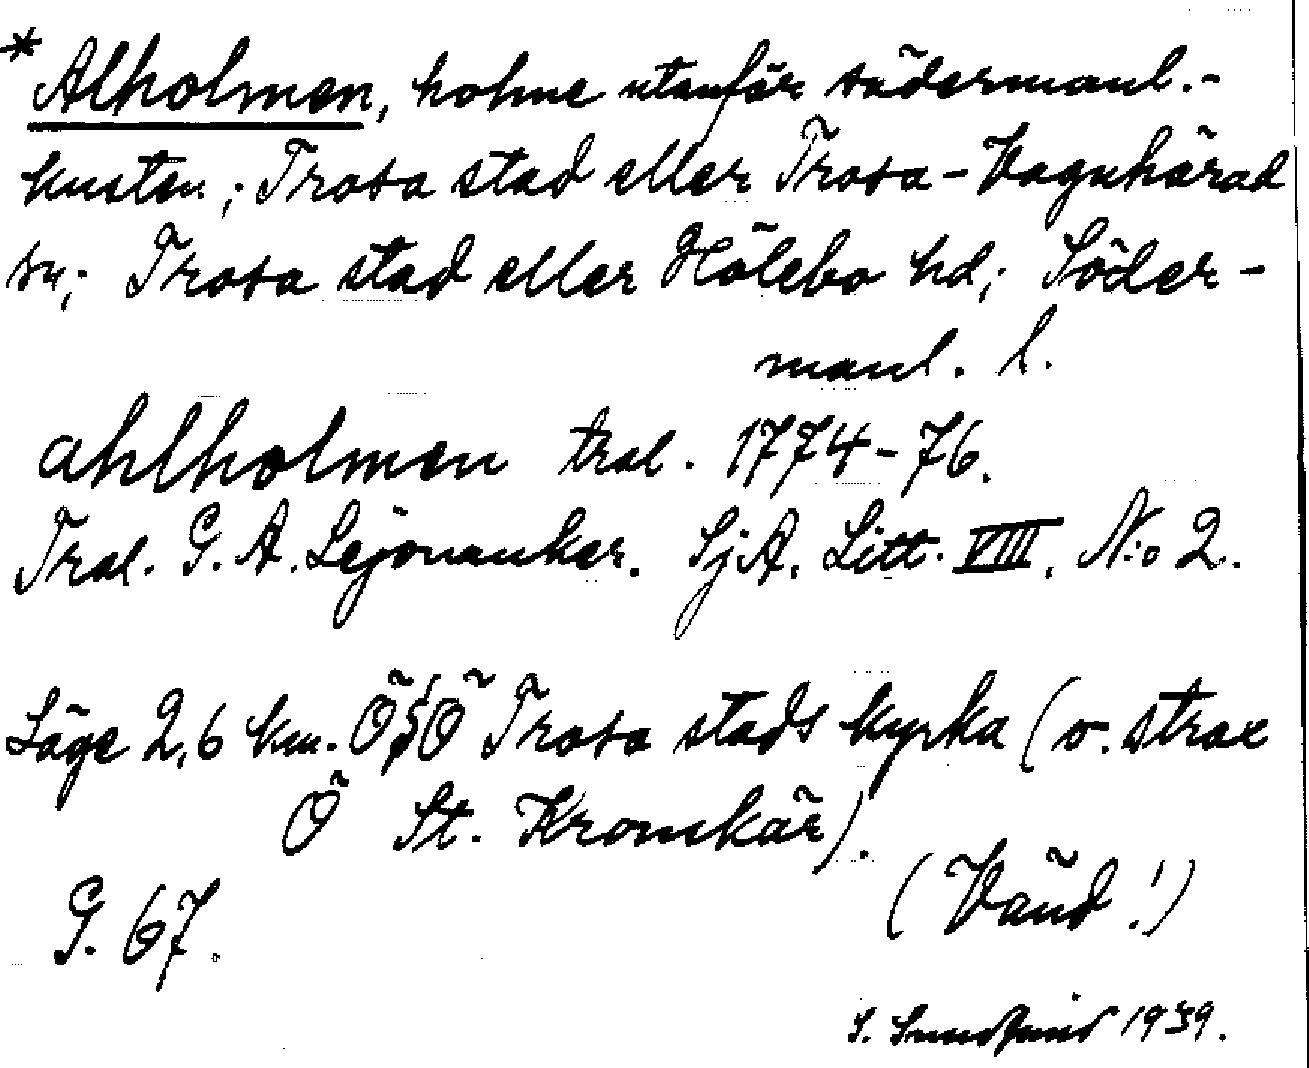 *Alholmen, holme utanför södermanl.-
kusten; Trosa stad eller Trosa-Vagnhärad
sn; Trosa stad eller Hölebo hd; Söder-
manl. l.
Ahlholmen tral. 1774-76.
Tral. G. A. Lejonanker. SjA. Litt. VIII. N:o 2.
Läge 2,6 km. ÖSÖ Trosa stads kyrka (o. strax
Ö St. Kromskär).
(Vänd!)
G. 67.
S. 1939.